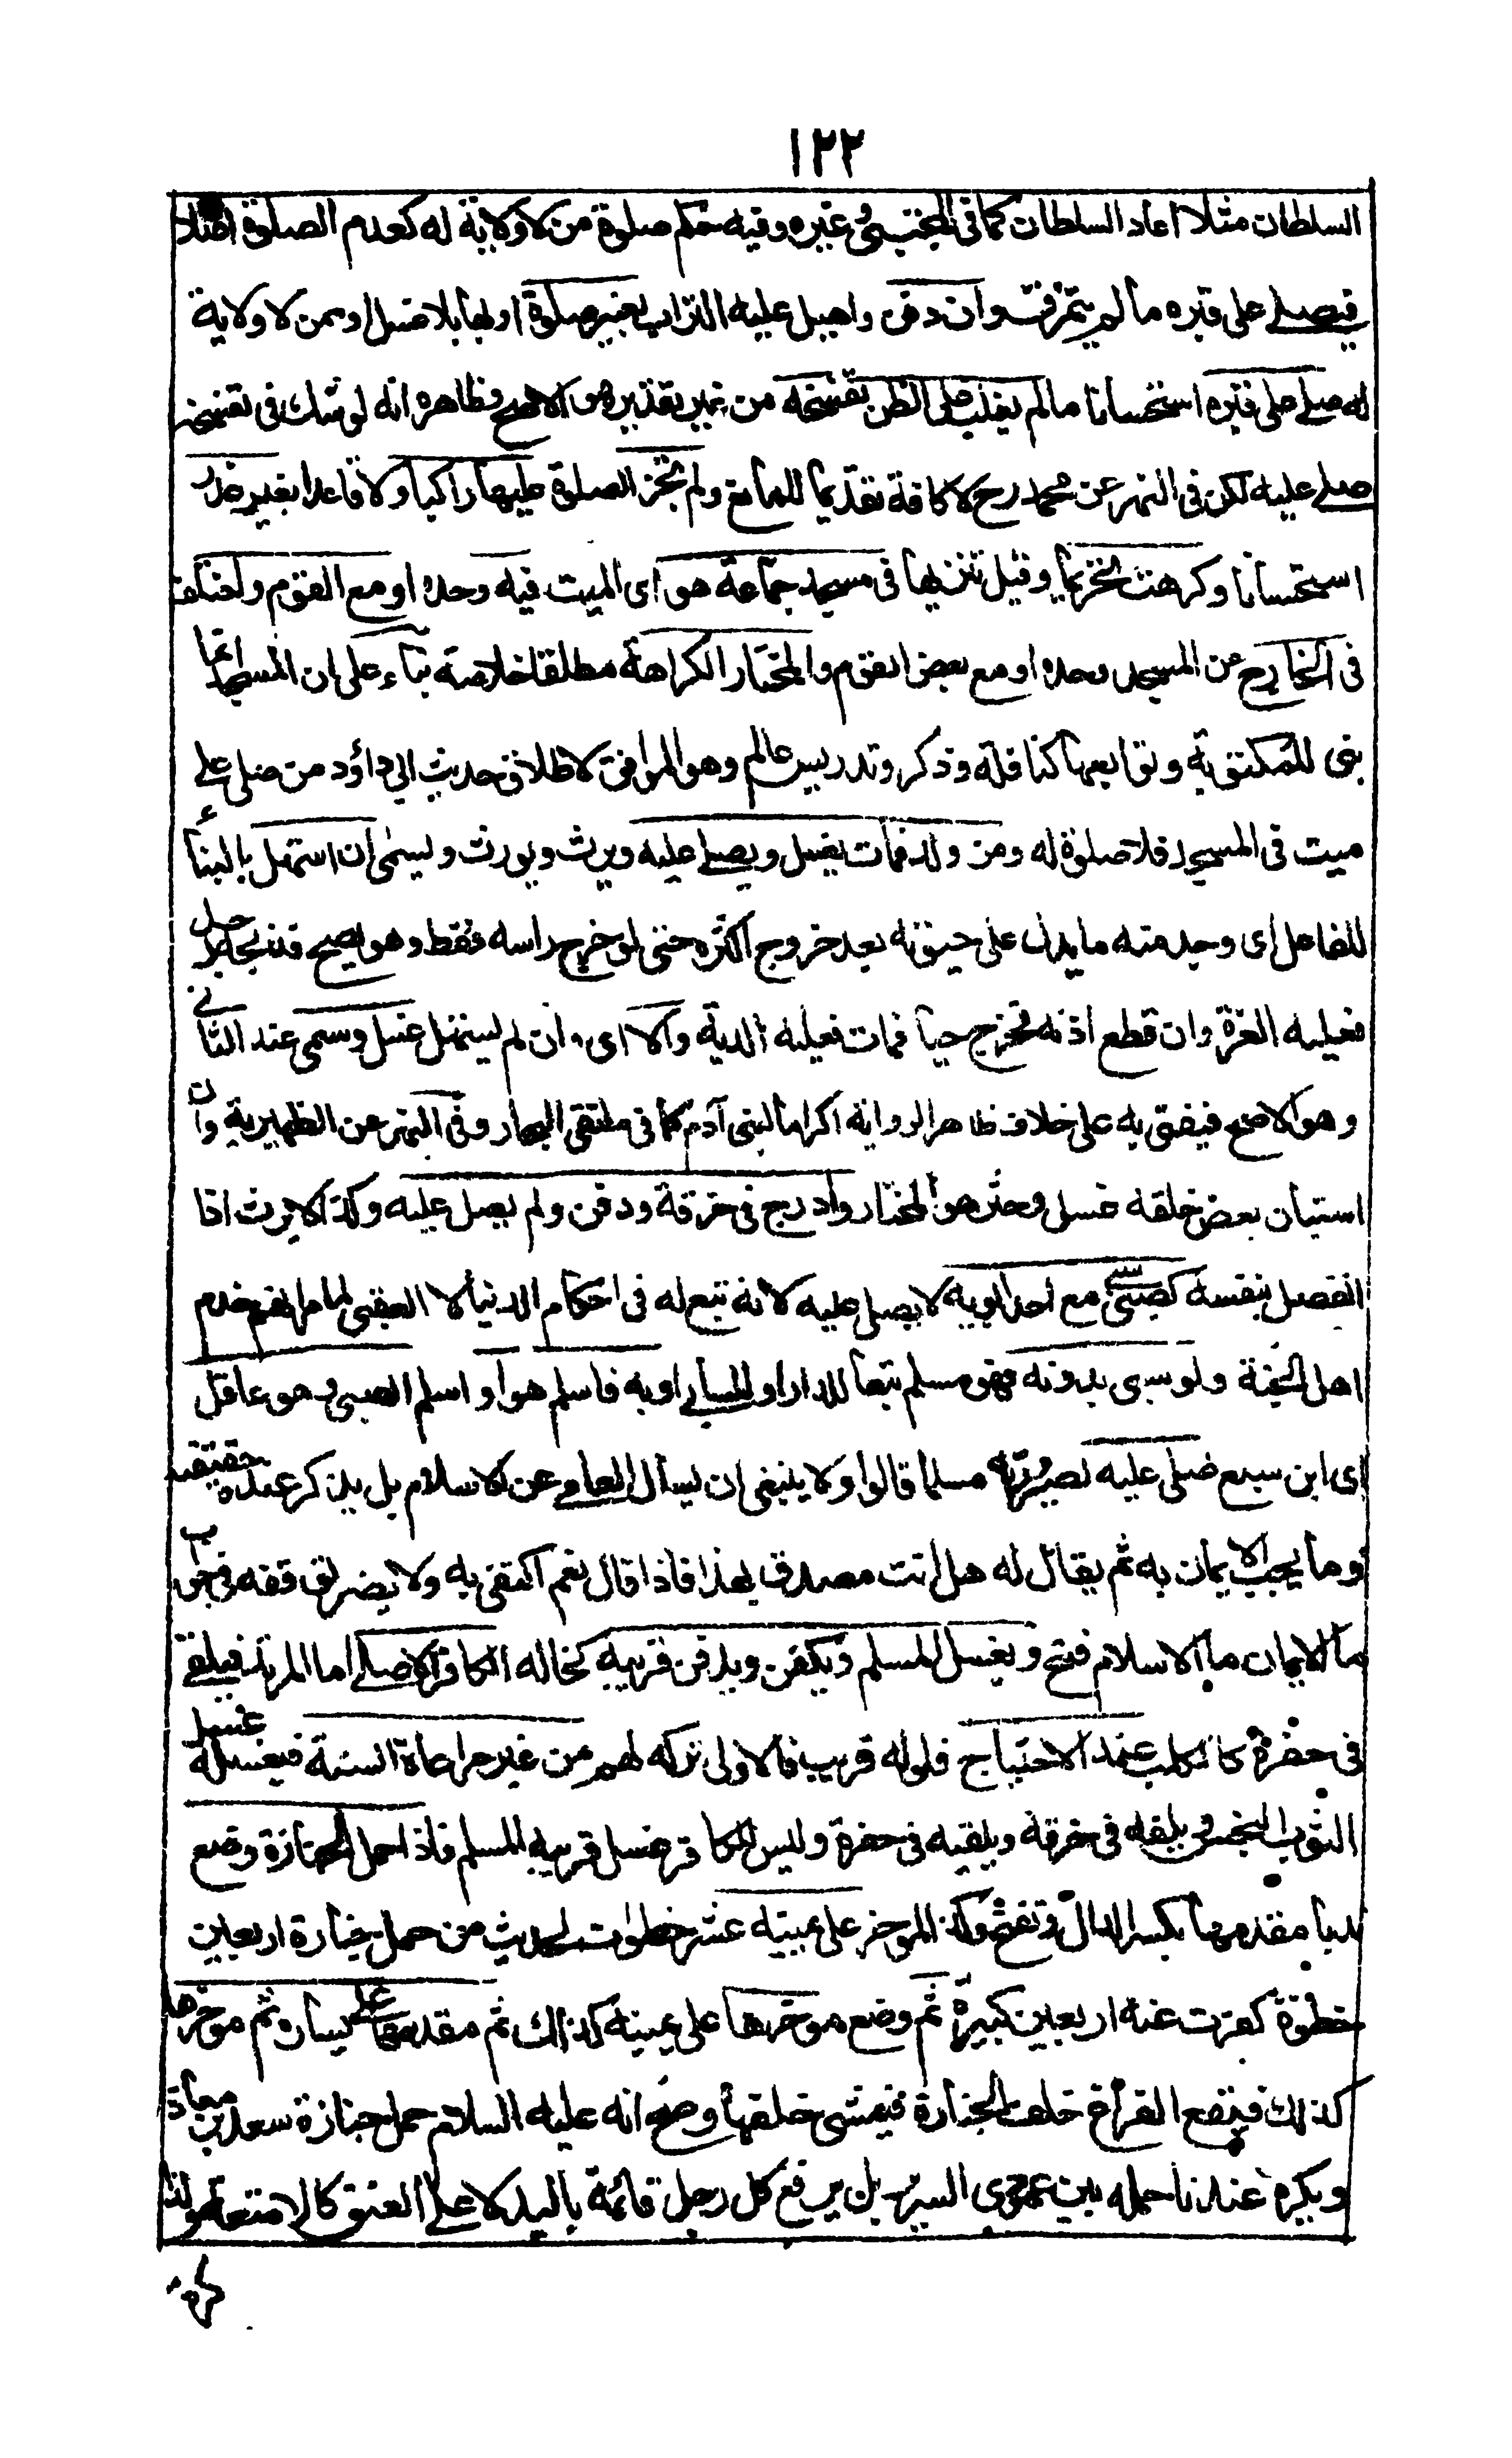 ١٢٢
السلطان مثلا اعاد السلطان كما فى المجتبى وغيره وفيه حكم صلوة من لا ولاية له كعدم الصلوة اصلا
فيصلے على قبره ما لم يتمزق وان دفن واهيل عليه التراب بغير صلوة او بها بلا غسل او ممن لا ولاية
له صلے على قبره استحسانا ما لم يغلب على الظن تفسخه من غير تقدير هو الاصح وظاهره انه لو شك فى تفسخه
صلے عليه لكن فى النهر عن محمد رح لا كافة تقديما للمانع ولم تجز الصلوة عليها راكبا ولا قاعدا بغير عذر
استحسانا وكرهت تحريما وقيل تنزيها فى مسجد جماعة هو اى الميت فيه وحده او مع القوم واختلف
فى الخارج عن المسجد وحده او مع بعض القوم والمختار الكراهة مطلقا خلاصة بناء على ان المسجد انما
بنى للمكتوبة وتوابعها كنافلة وذكر وتدريس عالم وهو الموافق لاطلاق حديث ابي داؤد من صلى على
ميت فى المسجد فلا صلوة له ومن ولد فمات يغسل ويصلے عليه ويرث ويورث ويسمى ان استهل بالبناء
للفاعل اى وجد منه ما يدل على حيوته بعد خروج اكثره حتى لو خرج راسه فقط وهو يصيح فذبحه رجل
فعليه الغرة وان قطع اذنه فخرج حيا فمات فعليه الدية والا اى وان لم يستهل غسل وسمى عند الثانى
وهو الاصح فيفتى به على خلاف ظاهر الرواية اكراما لبنى آدم كما فى ملتقى البحار وفى النهر عن الظهيرية وان
استبان بعض خلقه غسل وحشر هو المختار وادرج فى خرقة ودفن ولم يصل عليه وكذا لا يرث اذا
انفصل بنفسه كصبى سبى مع احد ابويه لا يصلى عليه لانه تبع له فى احكام الدنيا لا العقبى لما مر انهم خدم
اهل الجنة ولو سبى بدونه فهو مسلم تبعا للدار او للسابے او به فاسلم هو او اسلم الصبى وهو عاقل
اى ابن سبع صلى عليه لصيرورته مسلما قالوا ولا ينبغى ان يسأل العامى عن الاسلام بل يذكر عنده حقيقته
وما يجب الايمان به ثم يقال له هل انت مصدق بهذا فاذا قال نعم اكتفى به ولا يضر توقفه فى جواب
ما الايمان ما الاسلام فتح ويغسل المسلم ويكفن ويدفن قريبه كخاله الكافر الاصلے اما المرتد فيلقے
فى حفرة كالكلب عند الاحتياج فلو له قريب فالاولى تركه لهم من غير مراعاة السنة فيغسله غسل
الثوب النجس ويلفه فى خرقة ويلقيه فى حفرة وليس للكافر غسل قريبه المسلم فاذا حمل الجنازة وضع
ندبا مقدمها بكسر الدال وتفتح وكذا المؤخر على يمينه عشر خطوات لحديث من حمل جنازة اربعين
خطوة كفرت عنه اربعين كبيرة ثم وضع موخرها على يمينه كذلك ثم مقدمها على يساره ثم موخرها
كذلك فيقع الفراغ خلف الجنازة فيمشى خلفها وصح انه عليه السلام حمل جنازة سعد بن معاذ
ويكره عندنا حمله بين عمودى السرير بل يرفع كل رجل قائمة باليد لا على العنق كالامتعة ولذا
كره